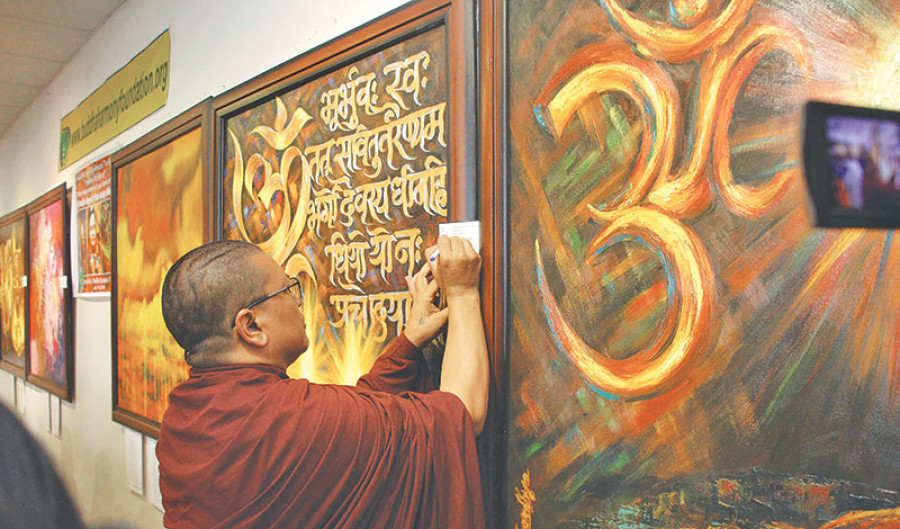 www.buddhaharmonyfoundation.org
ॐ
भूर्भुवः स्वः
तत् सवितुर्वरेण्यम
भर्गो देवस्य धीमहि
धियो योनः
प्रचोदया
ॐ